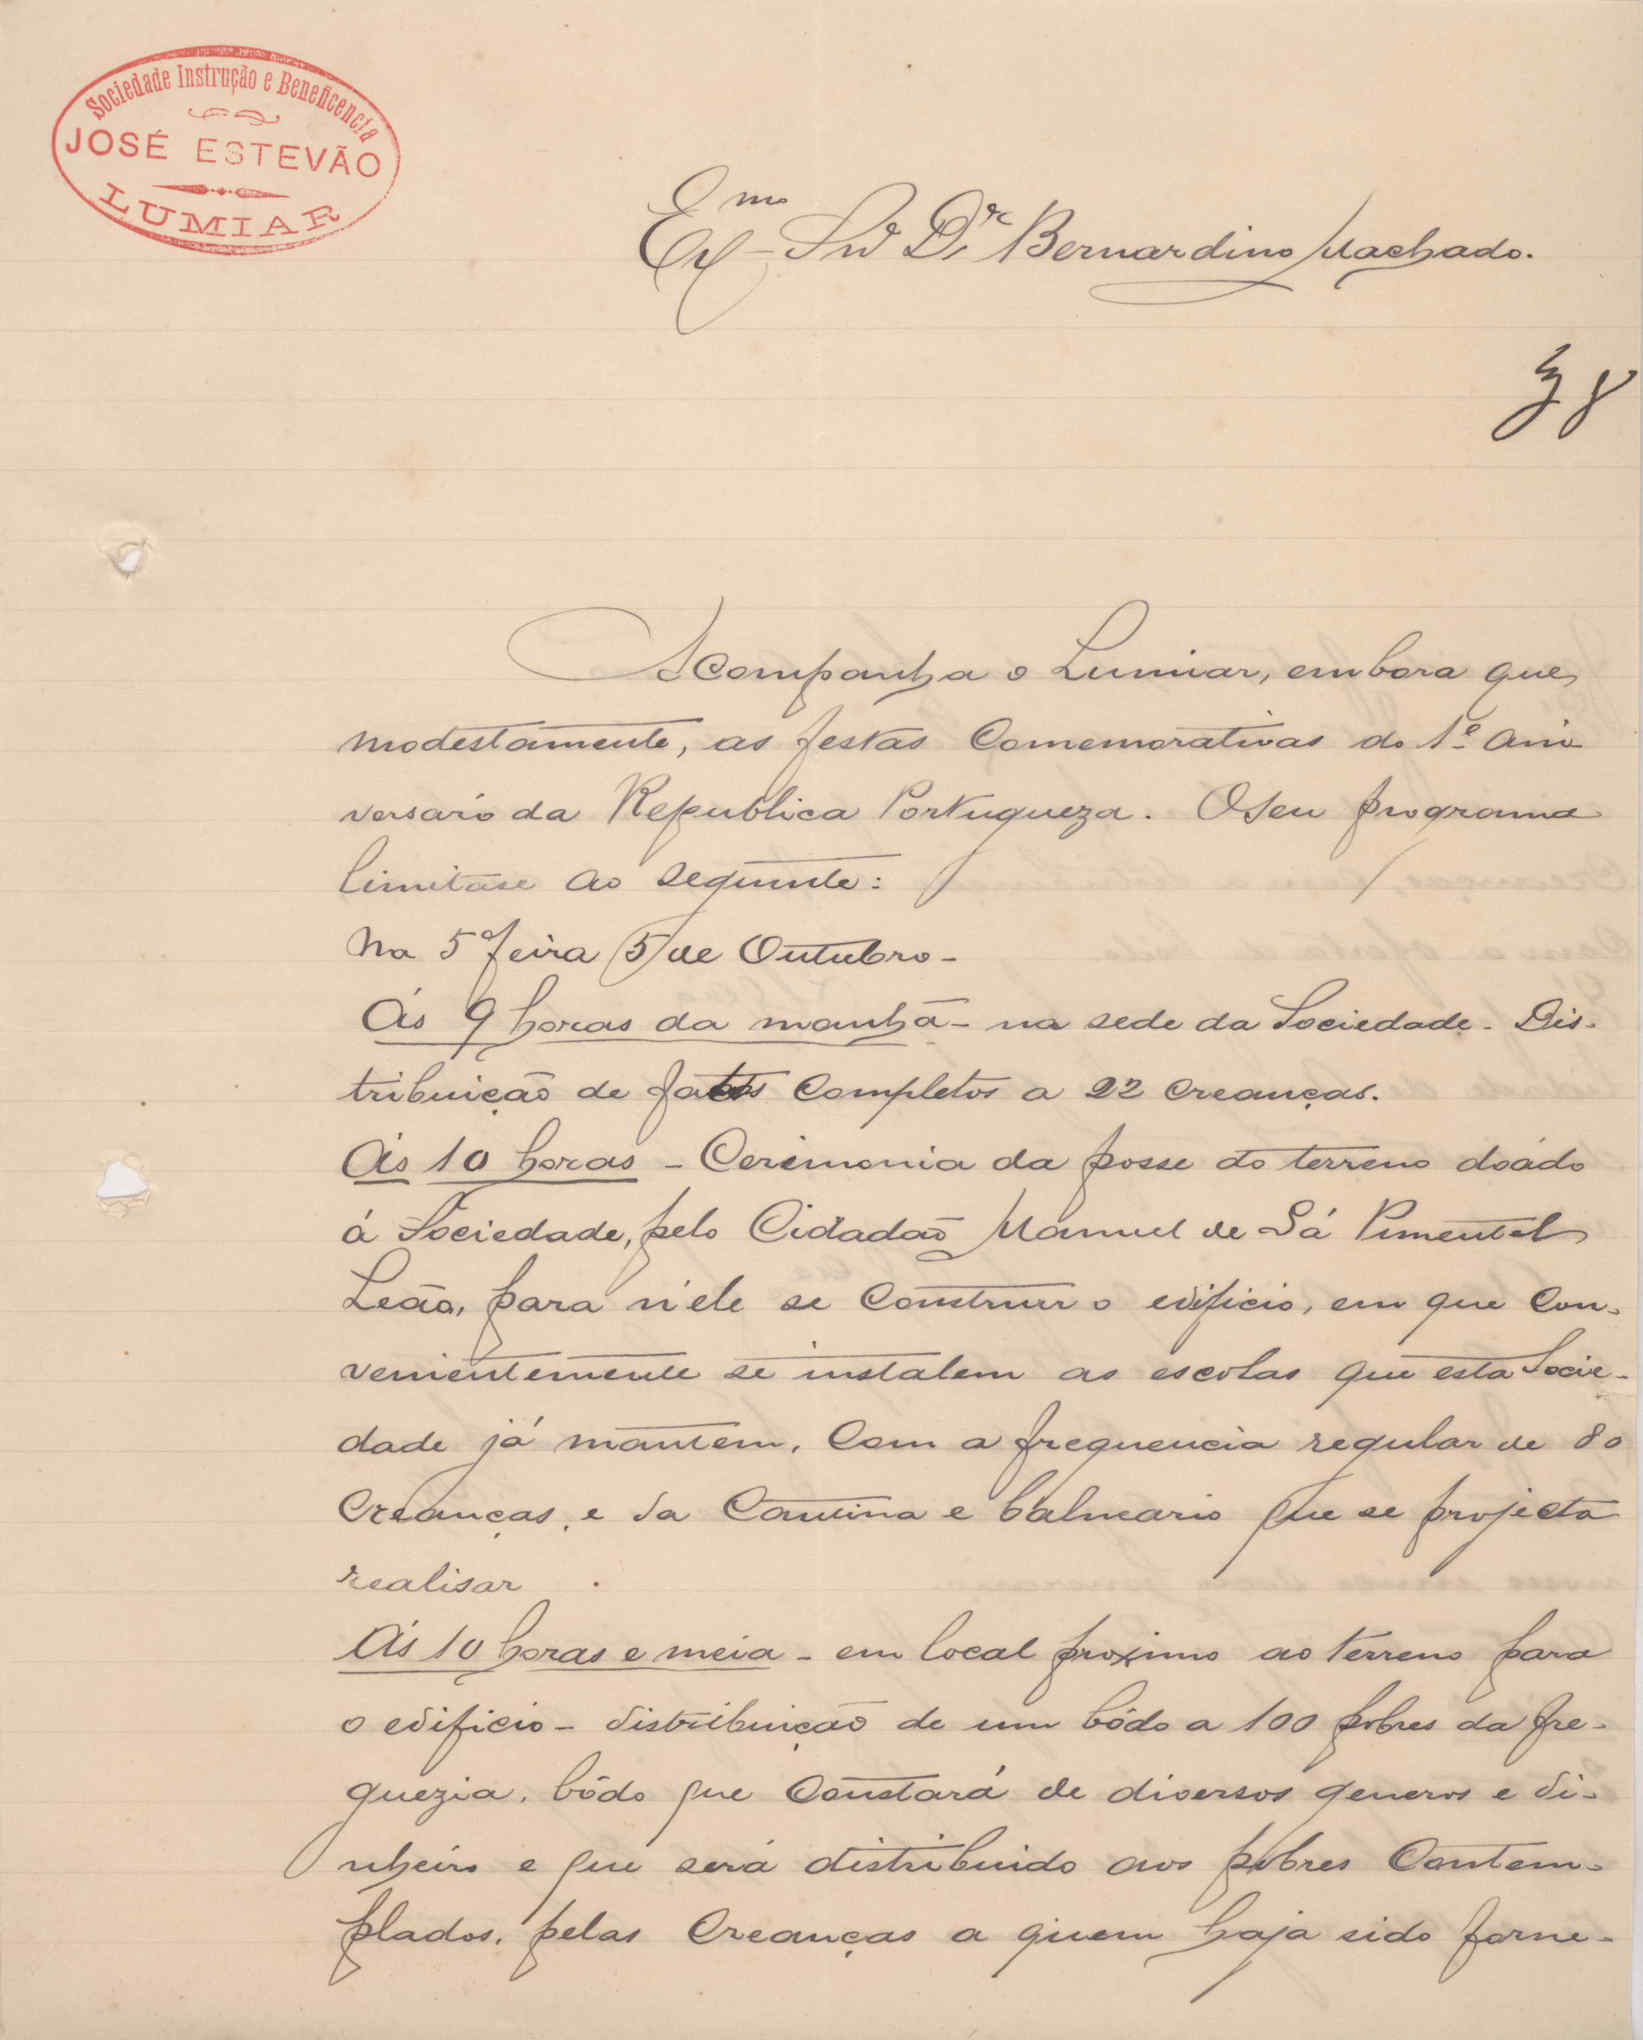 Sociedade Instrução e Beneficencia
JOSÉ ESTEVÃO
LUMIAR
Exmo Snr Dr Bernardino Machado.
38
Acompanha o Lumiar, embora que
modestamente, as festas Comemorativas do 1º ani-
versario da Republica Portugueza. O seu programa
limitase ao seguinte:
Na 5ª feira 5 de Outubro-
Ás 9 horas da manhã - na sede da Sociedade - Dis-
tribuição de fatos Completos a 22 Creanças.
Ás 10 horas - Cerimonia da posse do terreno doádo
á Sociedade, pelo Cidadão Manuel de Sá Pimentel
Leão, para n'ele se Construir o edificio, em que Con-
venientemente se instalem as escolas que esta Socie-
dade já mantem, Com a frequencia regular de 80
Creanças, e da Cantina e balneario que se projecta
realisar
Ás 10 horas e meia - em local proximo ao terreno para
o edificio - distribuição de um bôdo a 100 pobres da fre-
guezia, bôdo que Constará de diversos generos e di-
nheiro e que será distribuido aos pobres Contem-
plados, pelas Creanças a quem haja sido forne-